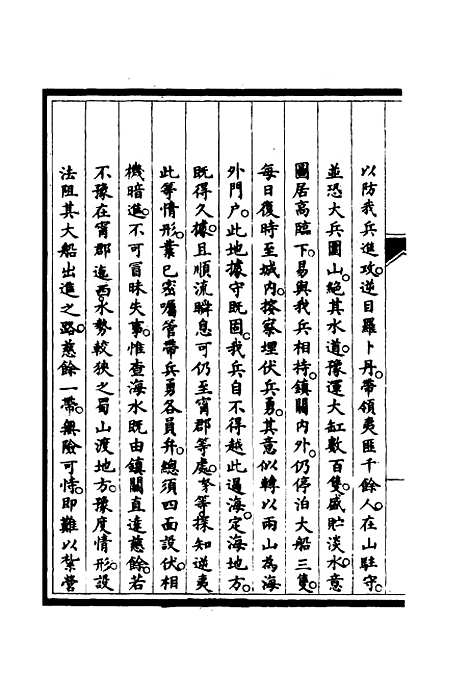 以防我兵進攻。逆目羅卜丹。帶領夷匪千餘人。在山駐守。
並恐大兵圍山。絕其水道。豫運大缸數百隻。盛貯淡水。意
圖居高臨下。易與我兵相持。鎮關內外。仍停泊大船三隻。
每日復時至城內。按察埋伏兵勇。其意似轉以兩山為海
外門户。此地據守既固。我兵自不得越此過海。定海地方。
既得久據。且順流瞬息可仍至甯郡等處。孥等探知逆夷
此等情形。業已密囑管帶兵勇各員弁。總須四面設伏。相
機暗進。不可冒昧失事。惟查海水既由鎮關直達慈餘。若
不豫在甯郡迤西。水勢較狹之蜀山渡地方。豫度情形。設
法阻其大船出進之路。慈餘一帶。無險可恃。即難以紮營